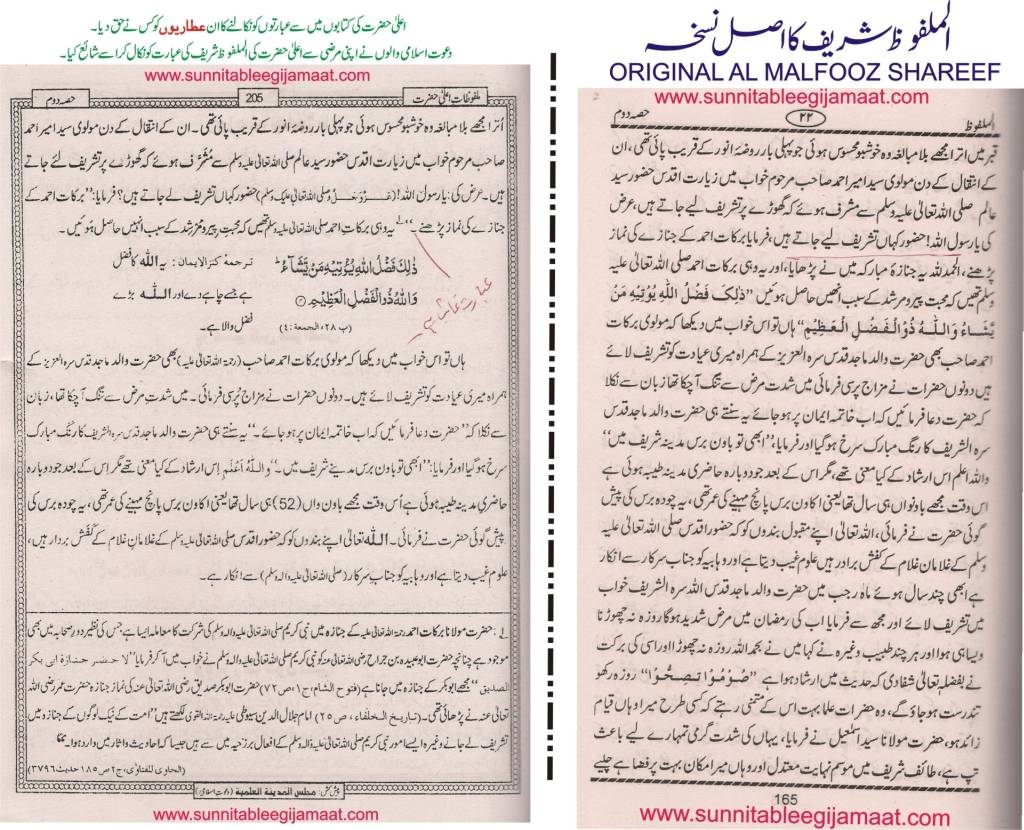 اعلیٰ حضرت کی کتابوں میں سے عبارتوں کو نکالنے کا ان عطاریوں کو کس نے حق دیا۔
دعوت اسلامی والوں نے اپنی مرضی سے اعلیٰ حضرت کی الملفوظ شریف کی عبارت کو نکال کر اسے شائع کیا۔
www.sunnitableegijamaat.com
ملفوظاتِ اعلیٰ حضرت
205
حصہ دوم
اُترا مجھے بلا مبالغہ وہ خوشبو محسوس ہوئی جو پہلی بار روضۂ انور کے قریب پائی تھی۔ ان کے انتقال کے دن مولوی سید امیر احمد
صاحب مرحوم خواب میں زیارت اقدس حضور سیدِ عالم صلی اللہ تعالیٰ علیہ وسلم سے مُشَرَّف ہوئے کہ گھوڑے پر تشریف لئے جاتے
ہیں۔ عرض کی: یارسول اللہ! (عَزَّوَجَلَّ و صلی اللہ تعالیٰ علیک وسلم) حضور کہاں تشریف لے جاتے ہیں؟ فرمایا: ’’برکات احمد کے
جنازے کی نماز پڑھنے۔‘‘ یہ وہی برکاتِ احمد صلی اللہ تعالیٰ علیہ وسلم تھیں کہ محبتِ پیر و مرشد کے سبب انہیں حاصل ہوئیں۔
ذٰلِکَ فَضْلُ اللّٰهِ یُؤْتِیْهِ مَنْ یَّشَآءُ ؕ
ترجمۂ کنزالایمان: یہ اللہ کا فضل
وَاللّٰهُ ذُوالْفَضْلِ الْعَظِیْمِ ۝
ہے جسے چاہے دے اور اللہ بڑے
(پ ۲۸، الجمعۃ: ٤)
فضل والا ہے۔
ہاں تو اس خواب میں دیکھا کہ مولوی برکات احمد صاحب (رحمۃ اللہ تعالیٰ علیہ) بھی حضرت والد ماجد قدس سرہ العزیز کے
ہمراہ میری عیادت کو تشریف لائے ہیں۔ دونوں حضرات نے مزاج پُرسی فرمائی۔ میں شدت مرض سے تنگ آ چکا تھا، زبان
سے نکلا کہ ’’حضرت دعا فرمائیں کہ اب خاتمہ ایمان پر ہو جائے۔‘‘ یہ سنتے ہی حضرت والد ماجد قدس سرہ الشریف کا رنگ مبارک
سرخ ہو گیا اور فرمایا: ’’ابھی تو باون برس مدینے شریف میں۔‘‘ وَاللّٰهُ اَعْلَمُ اِس ارشاد کے کیا معنی تھے مگر اس کے بعد جو دوبارہ
حاضری مدینہ طیبہ ہوئی ہے اُس وقت مجھے باون واں (52) ہی سال تھا یعنی اکاون برس پانچ مہینے کی عمر تھی، یہ چودہ برس کی
پیش گوئی حضرت نے فرمائی۔ اللہ تعالیٰ اپنے بندوں کو کہ حضور اقدس صلی اللہ تعالیٰ علیہ وسلم کے غلامانِ غلام کے کَفْش بردار ہیں،
علوم غیب دیتا ہے اور وہابیہ کو جناب سرکار (صلی اللہ تعالیٰ علیہ والہ وسلم) سے انکار ہے۔
حضرت مولانا برکات احمد رحمۃ اللہ تعالیٰ علیہ کے جنازہ میں نبی کریم صلی اللہ تعالیٰ علیہ والہ وسلم کی شرکت کا معاملہ ایسا ہے جس کی نظیر دورِ صحابہ میں بھی
موجود ہے چنانچہ حضرت ابوعبیدہ بن جراح رضی اللہ تعالیٰ عنہ کو نبی کریم صلی اللہ تعالیٰ علیہ والہ وسلم نے خواب میں آ کر فرمایا ’’لا حضر جنازة ابی بکر
الصدیق‘‘ مجھے ابوبکر کے جنازہ میں جانا ہے (فتوح الشام، ج ۱، ص ۷۲) حضرت ابوبکر صدیق رضی اللہ تعالیٰ عنہ کی نماز جنازہ حضرت عمر رضی اللہ
تعالیٰ عنہ نے پڑھائی تھی۔ (تاریخ الخلفاء، ص ٦٥) امام جلال الدین سیوطی علیہ رحمۃ اللہ القوی لکھتے ہیں ’’امت کے نیک لوگوں کے جنازہ میں
تشریف لے جانے وغیرہ ایسے امور نبی کریم صلی اللہ تعالیٰ علیہ والہ وسلم کے افعال برزخیہ میں سے ہیں جیسا کہ احادیث و آثار میں وارد ہوا۔‘‘
(الحاوی للفتاوی، ج ۲ ص ۱۸۵)
پیش کش: مجلس المدینة العلمیة (دعوتِ اسلامی)
www.sunnitableegijamaat.com
الملفوظ شریف کا اصل نسخہ
ORIGINAL AL MALFOOZ SHAREEF
www.sunnitableegijamaat.com
الملفوظ
۲۲
حصہ دوم
قبر میں اترا مجھے بلا مبالغہ وہ خوشبو محسوس ہوئی جو پہلی بار روضۂ انور کے قریب پائی تھی، ان
کے انتقال کے دن مولوی سید امیر احمد صاحب مرحوم خواب میں زیارت اقدس حضور سید
عالم صلی اللہ تعالیٰ علیہ وسلم سے مشرف ہوئے کہ گھوڑے پر تشریف لیے جاتے ہیں، عرض
کی یا رسول اللہ! حضور کہاں تشریف لیے جاتے ہیں، فرمایا برکات احمد کے جنازے کی نماز
پڑھنے، الحمد للہ یہ جنازۂ مبارکہ میں نے پڑھایا، اور یہ وہی برکات احمد صلی اللہ تعالیٰ علیہ
وسلم تھیں کہ محبت پیر و مرشد کے سبب انھیں حاصل ہوئیں ’’ذٰلِکَ فَضْلُ اللّٰهِ یُؤْتِیْهِ مَنْ
یَّشَاءُ وَاللّٰهُ ذُوالْفَضْلِ الْعَظِیْمِ‘‘ ہاں تو اس خواب میں دیکھا کہ مولوی برکات
احمد صاحب بھی حضرت والد ماجد قدس سرہ العزیز کے ہمراہ میری عیادت کو تشریف لائے
ہیں دونوں حضرات نے مزاج پرسی فرمائی میں شدت مرض سے تنگ آ چکا تھا زبان سے نکلا
کہ حضرت دعا فرمائیں کہ اب خاتمہ ایمان پر ہو جائے۔ یہ سنتے ہی حضرت والد ماجد قدس
سرہ الشریف کا رنگ مبارک سرخ ہو گیا اور فرمایا، ’’ابھی تو باون برس مدینہ شریف میں‘‘
واللہ اعلم اس ارشاد کے کیا معنی تھے، مگر اس کے بعد جو دوبارہ حاضری مدینہ طیبہ ہوئی ہے
اس وقت مجھے باونواں ہی سال تھا یعنی اکاون برس پانچ مہینے کی عمر تھی، یہ چودہ برس کی پیش
گوئی حضرت نے فرمائی، اللہ تعالیٰ اپنے مقبول بندوں کو کہ حضور اقدس صلی اللہ تعالیٰ علیہ
وسلم کے غلامان غلام کے کفش بردار ہیں علوم غیب دیتا ہے اور وہابیہ کو جناب سرکار سے انکار
ہے ابھی چند سال ہوئے ماہ رجب میں حضرت والد ماجد قدس اللہ سرہ الشریف خواب
میں تشریف لائے اور مجھ سے فرمایا اب کی رمضان میں مرض شدید ہوگا روزہ نہ چھوڑنا
ویسا ہی ہوا اور ہر چند طبیب وغیرہ نے کہا میں نے بحمد اللہ روزہ نہ چھوڑا اور اسی کی برکت
نے بفضلہ تعالیٰ شفا دی کہ حدیث میں ارشاد ہوا ہے ’’صُوْمُوْا تَصِحُّوْا‘‘ روزہ رکھو
تندرست ہو جاؤ گے، وہ حضرات علما بہت اس کے متمنی رہتے کہ کسی طرح میرا وہاں قیام
زائد ہو، حضرت مولانا سید اسمٰعیل نے فرمایا، یہاں کی شدت گرمی تمہارے لیے باعث
تپ ہے، طائف شریف میں موسم نہایت معتدل اور وہاں میرا مکان بہت پر فضا ہے چلیے
165
www.sunnitableegijamaat.com